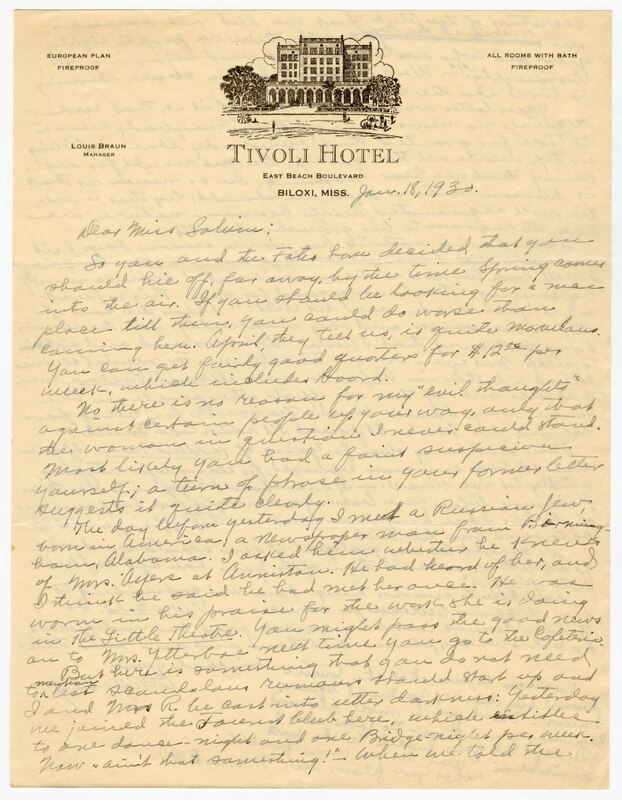 EUROPEAN PLAN
FIREPROOF
ALL ROOMS WITH BATH
FIREPROOF
LOUIS BRAUN
MANAGER
TIVOLI HOTEL
EAST BEACH BOULEVARD
BILOXI, MISS. Jan. 18, 1930.
Dear Miss
So you and the Fates have decided that you
should hie off, far away, by the time Spring comes
into the air. If you should be looking for a nice
place till then, you could do worse than
coming here. April, they tell us, is quite Marvelous.
You can get fairly good quarters for $12.00 per
week, which includes board.
No there is no reason for my "evil thoughts"
against certain people up your way, only that
the woman in question I never could stand.
Most likely you had a faint suspicion
yourself; a turn of phrase in your former letter
suggests it quite clearly.
The day before yesterday I met a Russian Jew,
born in America, a newspaper man from Birming-
ham, Alabama. I asked him whether he knew
of Mrs. Ayers at Anniston. He had heard of her, and
I think he said he had met her once. He was
warm in his praise for the work she is doing
in The Little Theatre. You might pass the good news
on to Mrs. next time you go to the Cafeteria.
But here is something that you do not need
mention
to lest scandalous rumours should start up and
I and Mrs R. be cast into utter darkness: Yesterday
we joined the Tourist Club here, which entitles
to one dance-night and one Bridge-night per week.
Now "ain't that something!" - When we told the